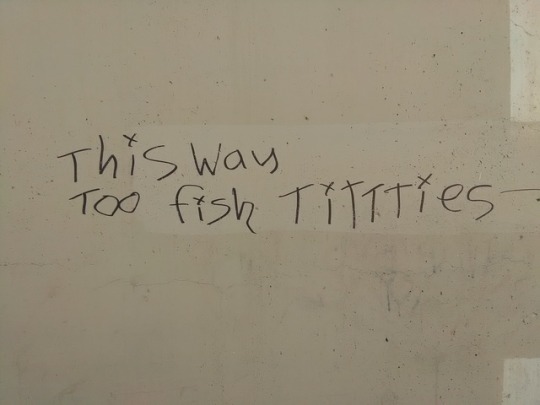 This Way
Too fish TiTTTies